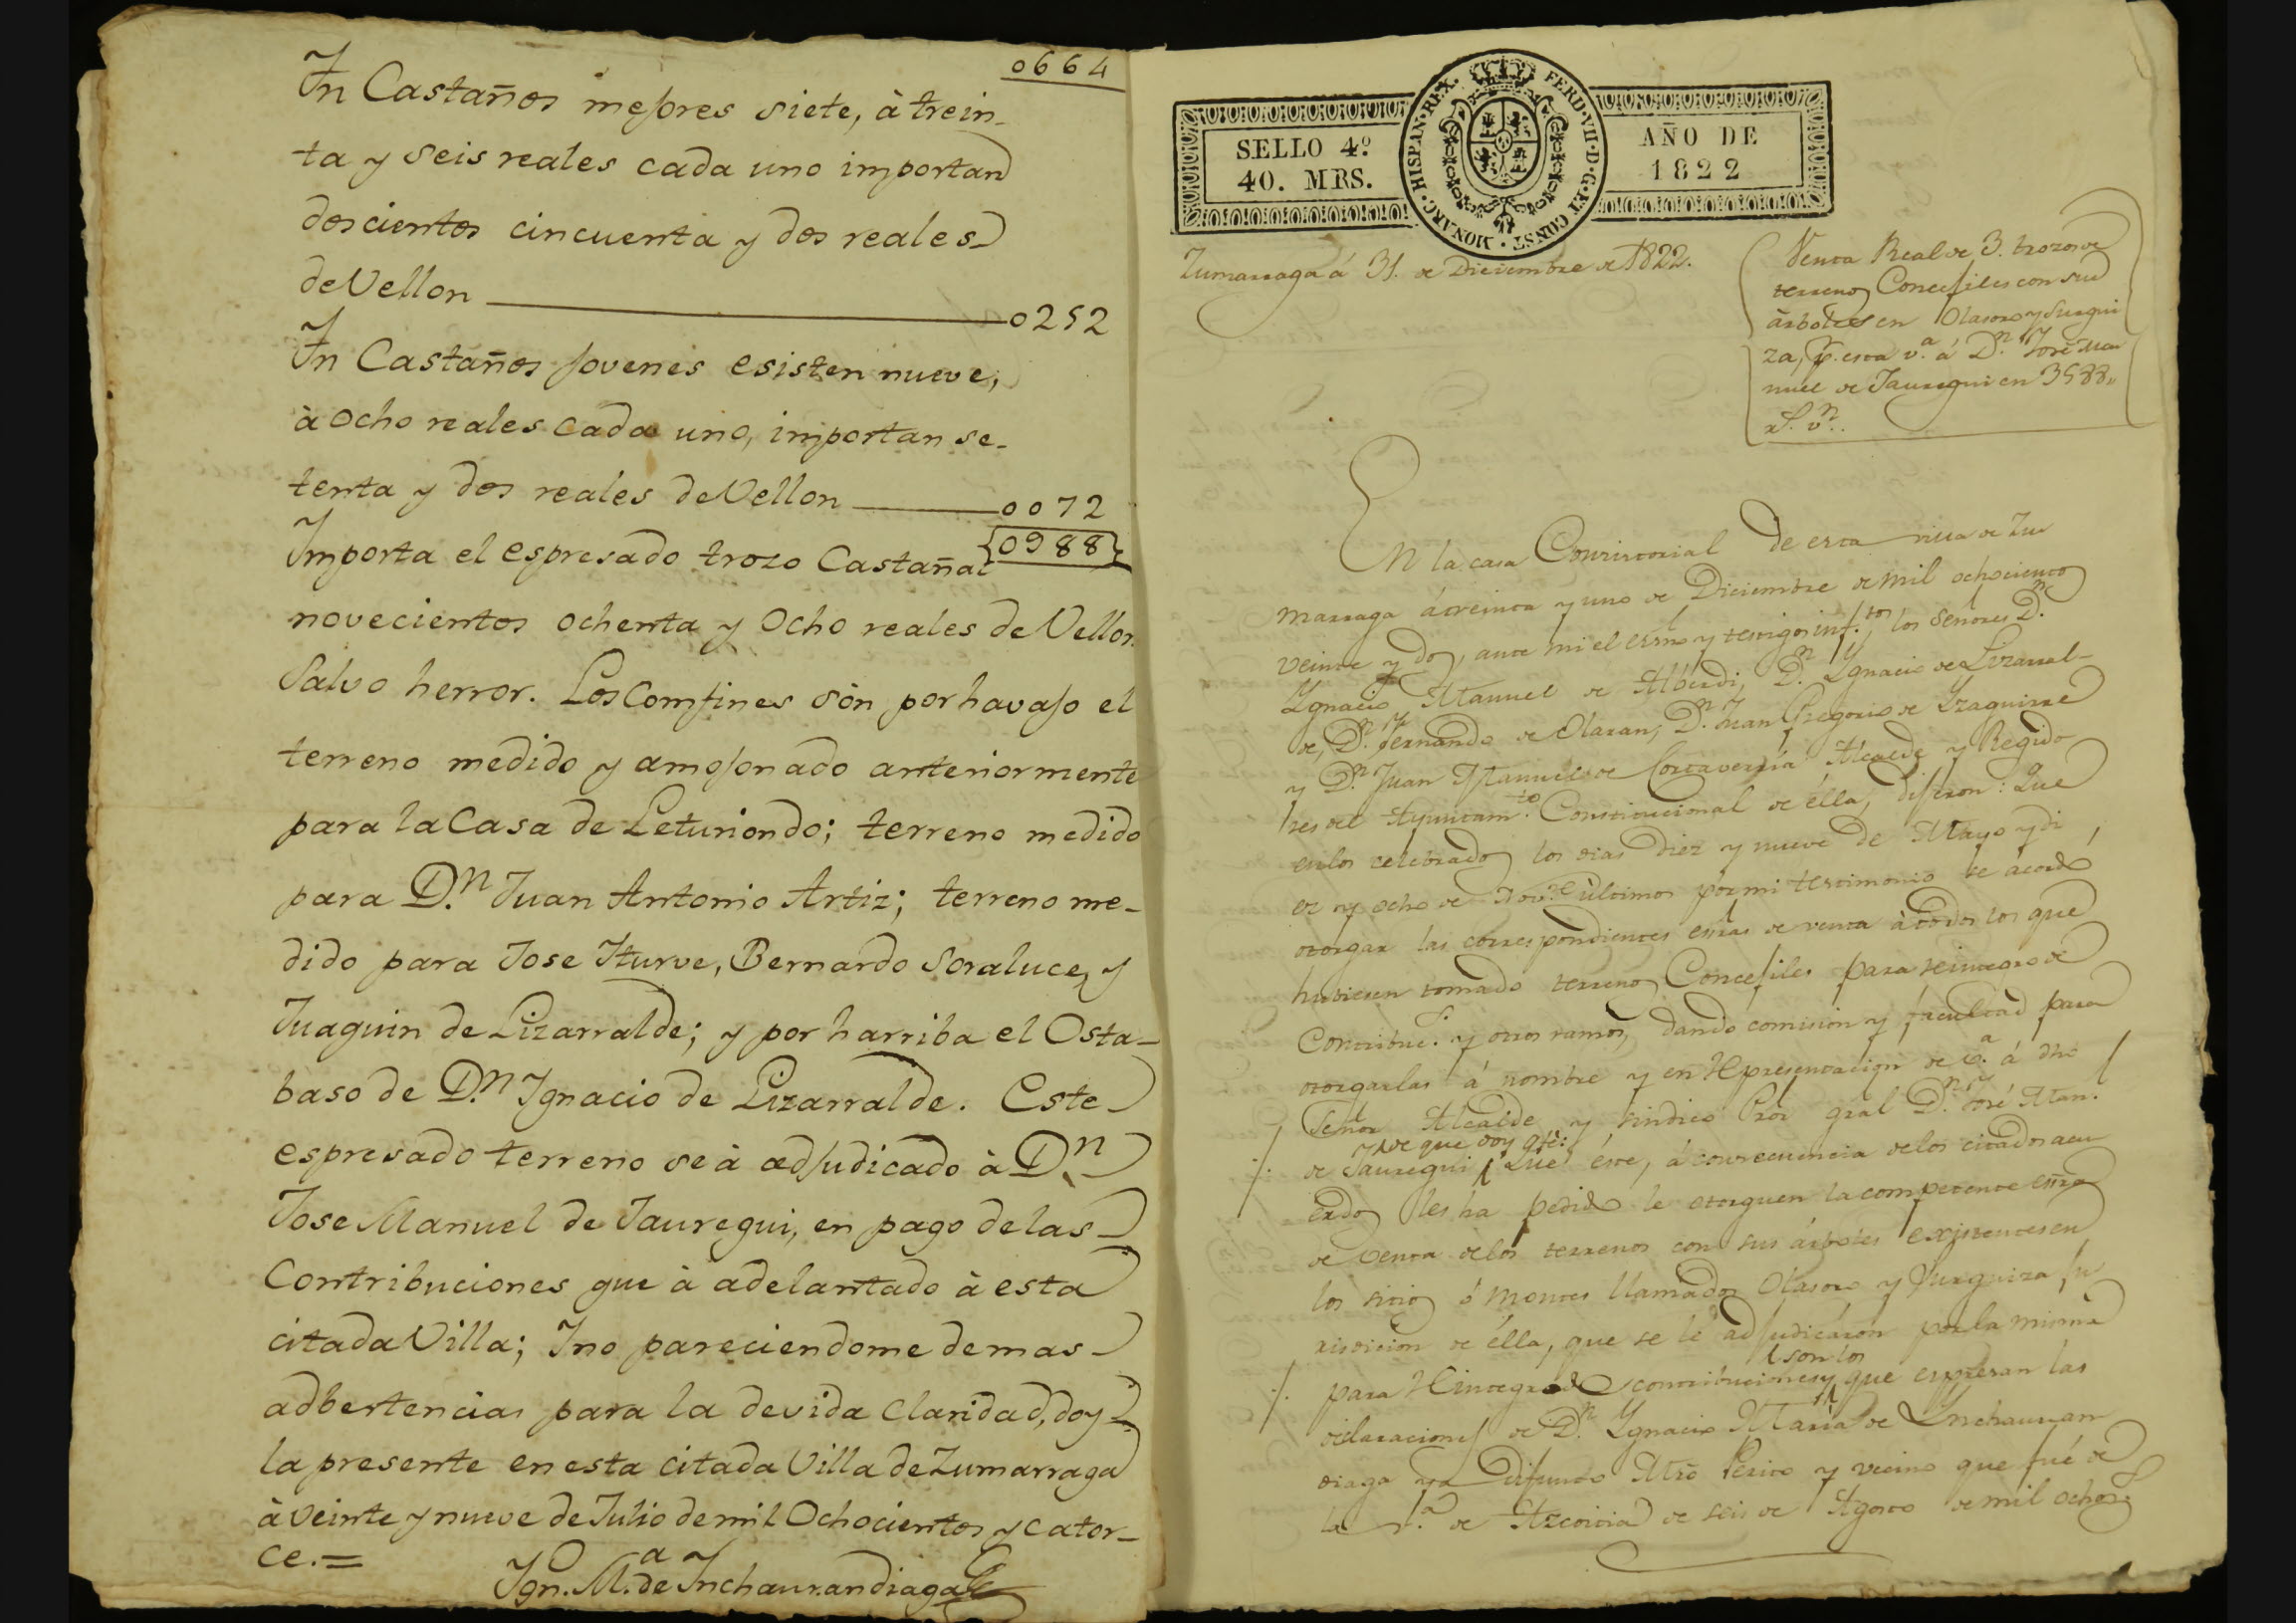 0664
In Castaños mejores siete, à trein-
ta y seis reales cada uno importan
doscientos cincuenta y dos reales
de Vellon 0252
In Castaños jovenes esisten nueve,
à ocho reales cada uno, importan se-
tenta y dos reales de Vellon 0072
Importa el espresado trozo Castañal 0988
novecientos ochenta y Ocho reales de Vellon.
Salvo herror. Los Comfines són por havajo el
terreno medido y amojonado anteriormente
para la Casa de Leturiondo; terreno medido
para D.n Juan Antonio Artiz; terreno me-
dido para Jose Iturve, Bernardo Soraluce, y
Juaquin de Lizarralde; y por harriba el Osta-
baso de D.n Ignacio de Lizarralde. Este
espresado terreno se à adjudicado à D.n
Jose Manuel de Jauregui, en pago de las
Contribuciones que à adelantado à esta
citada Villa; I no pareciendome demas
adbertencias para la devida claridad, doy
la presente en esta citada Villa de Zumarraga
à veinte y nueve de Julio de mil Ochocientos y cator-
ce.=
Ign. M.a de Inchaurrandiaga
SELLO 4º
40. MRS.
HISPAN·REX. FERD·VII·D·G·ET CONST·MONARC·
AÑO DE
1822
Zumarraga á 31. de Diciembre de 1822.
Venta Real de 3. trozos de
terrenos Concejiles con sus
árboles en Olasoro y Surqui
za, p.r esta v.a á D.n José Ma
nuel de Jauregui en 3588..
r.s v.n.
En la casa Consistorial de esta villa de Zu
marraga á treinta y uno de Diciembre de mil ochocientos
veinte y dos, ante mi el essno y testigos inf.tos los Señores D.n
Ygnacio Manuel de Alberdi, D.n Ygnacio de Lizarral-
de, D.n Fernando de Olaran, D.n Juan Gregorio de Yzaguirre
y D.n Juan Manuel de Cortaverría Alcalde y Regido
res del Ayuntam.to Constitucional de élla, dijeron: Que
en los celebrados los dias diez y nueve de Mayo y di
ez y ocho de Nov.e ultimos por mi testimonio se acordó
otorgar las correspondientes essras de venta à todos los que
hubiesen tomado terrenos Concejiles para reintegro de
Contribuc.s y otros ramos, dando comisión y facultad para
otorgarlas á nombre y en representacion de v.a á dho
Señor Alcalde y sindico Prör gral D.n José Man.l
/ de que doy fé:
de Jauregui / Que éste, á consecuencia de los citados acu
erdos les ha pedido le otorguen la competente essra
de venta de los terrenos con sus árboles existentes en
los sitios ó montes llamados Olasoro y Surquiza ju
risdicion de élla, que se le adjudicáron por la misma
/ son los
para reintegro de contribuciones y que espresan las
declaraciones de D.n Ygnacio María de Ynchaurran
diaga ya difunto Mtrö Perito y vecino que fué de
la v.a de Azcoitia de seis de Agosto de mil ochoc.s